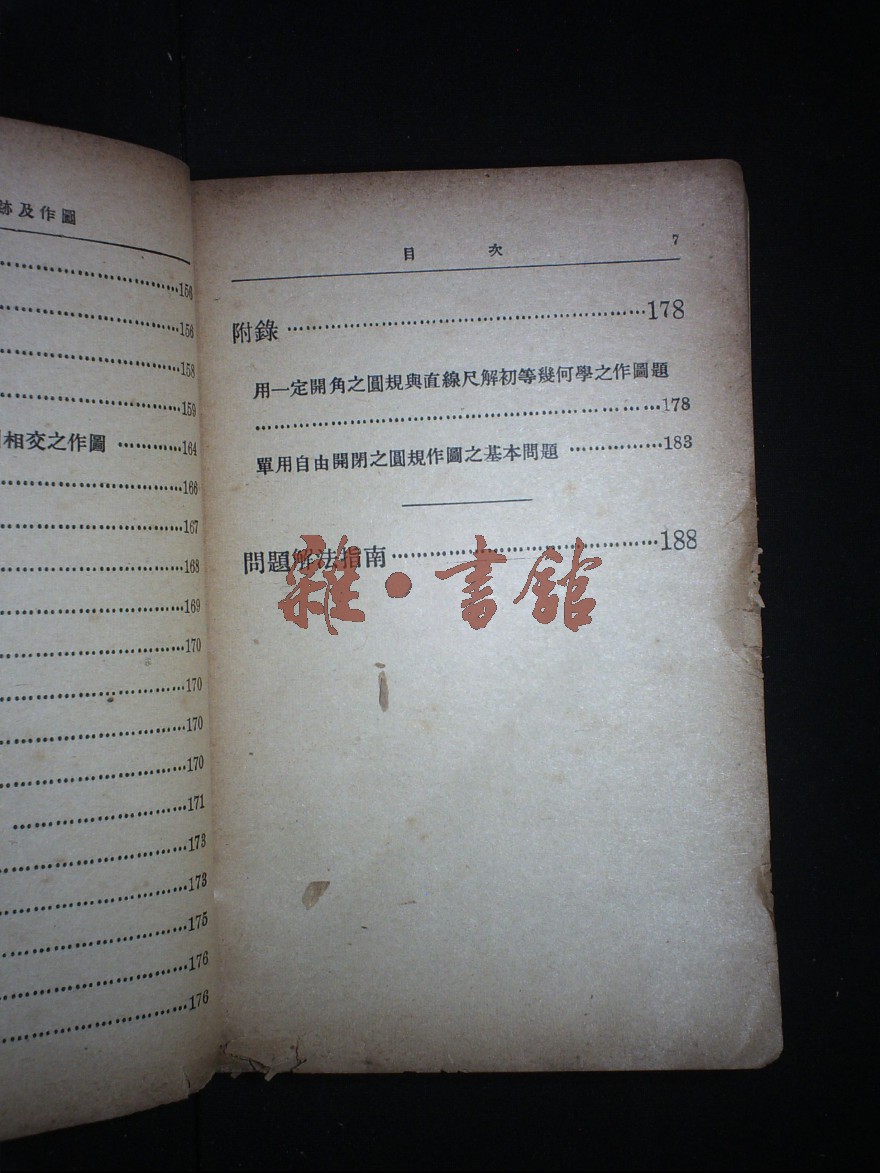 跡及作圖
156
156
158
159
相交之作圖 …………164
166
167
168
169
170
170
170
170
171
173
173
175
176
176
目 次 7
附錄 ……………………………………………178
用一定開角之圓規與直線尺解初等幾何學之作圖題
……………………………………………………178
單用自由開閉之圓規作圖之基本問題 ……………183
問題解法指南 ………………………………188
雜·書館